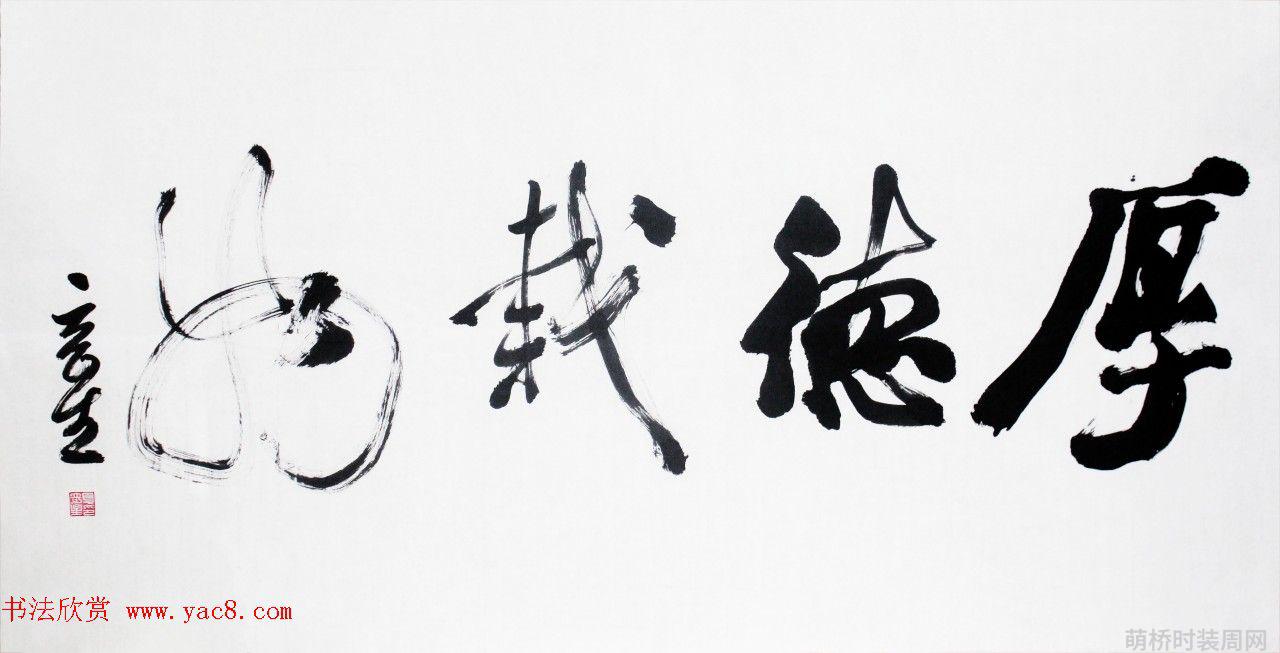 厚德载物
书法欣赏 www.yac8.com
萌桥时装周网